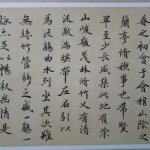 春之初會于會稽山陰
蘭亭脩稧事也群賢
畢至少長咸集此地有崇
山峻嶺茂林脩竹又有清
流激湍暎帶左右引以
為流觴曲水列坐其次雖
無絲竹管絃之盛一觴一
詠亦足以暢敘幽情是